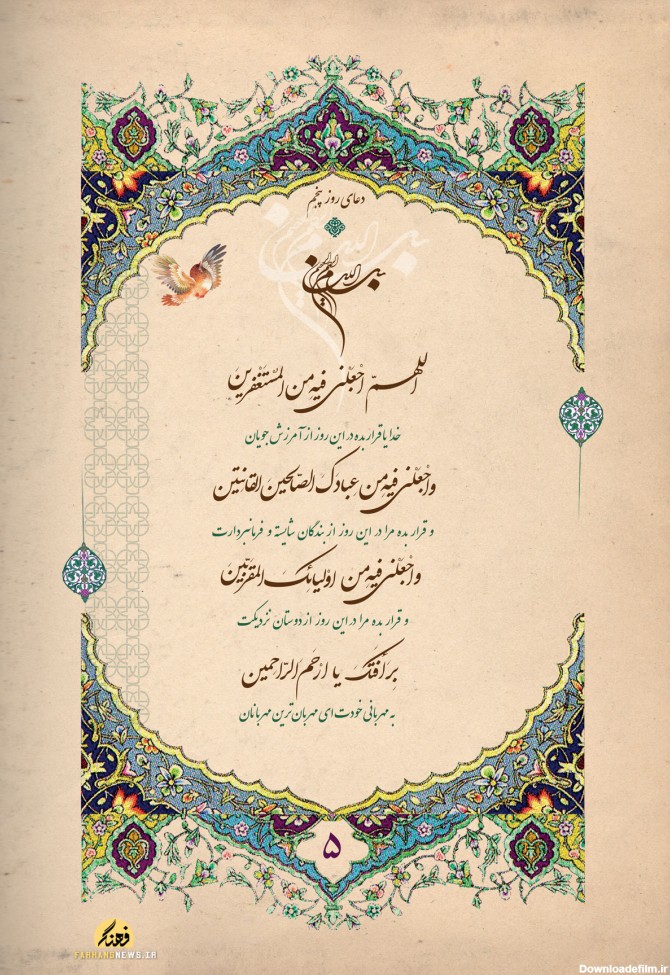 دعای روز پنجم
بسم الله الرحمن الرحیم
اللهمّ اجْعلنی فیه من المستغفرین
خدایا قرار بده در این روز از آمرزش جویان
واجْعلنی فیه من عبادک الصّالحین القانتین
و قرار بده مرا در این روز از بندگان شایسته و فرمانبردارت
واجْعلنی فیه من اوْلیائک المقرّبین
و قرار بده مرا در این روز از دوستان نزدیکت
بِرأفتک یا ارْحم الرّاحمین
به مهربانی خودت ای مهربان ترین مهربانان
۵
فرهنگ
FARHANGNEWS.IR
Downloadefilm.ir